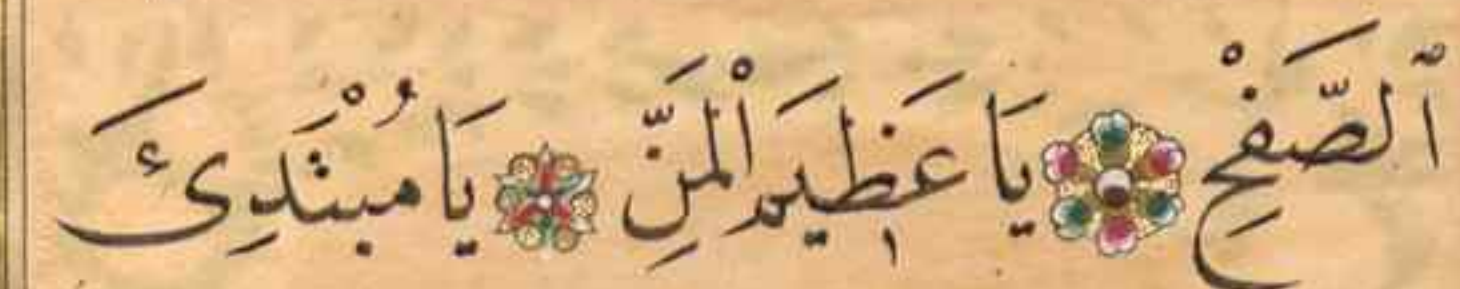 ٱلصَّفْحِ يَا عَظِيمَ ٱلْمَنِّ يَا مُبْتَدِئَ